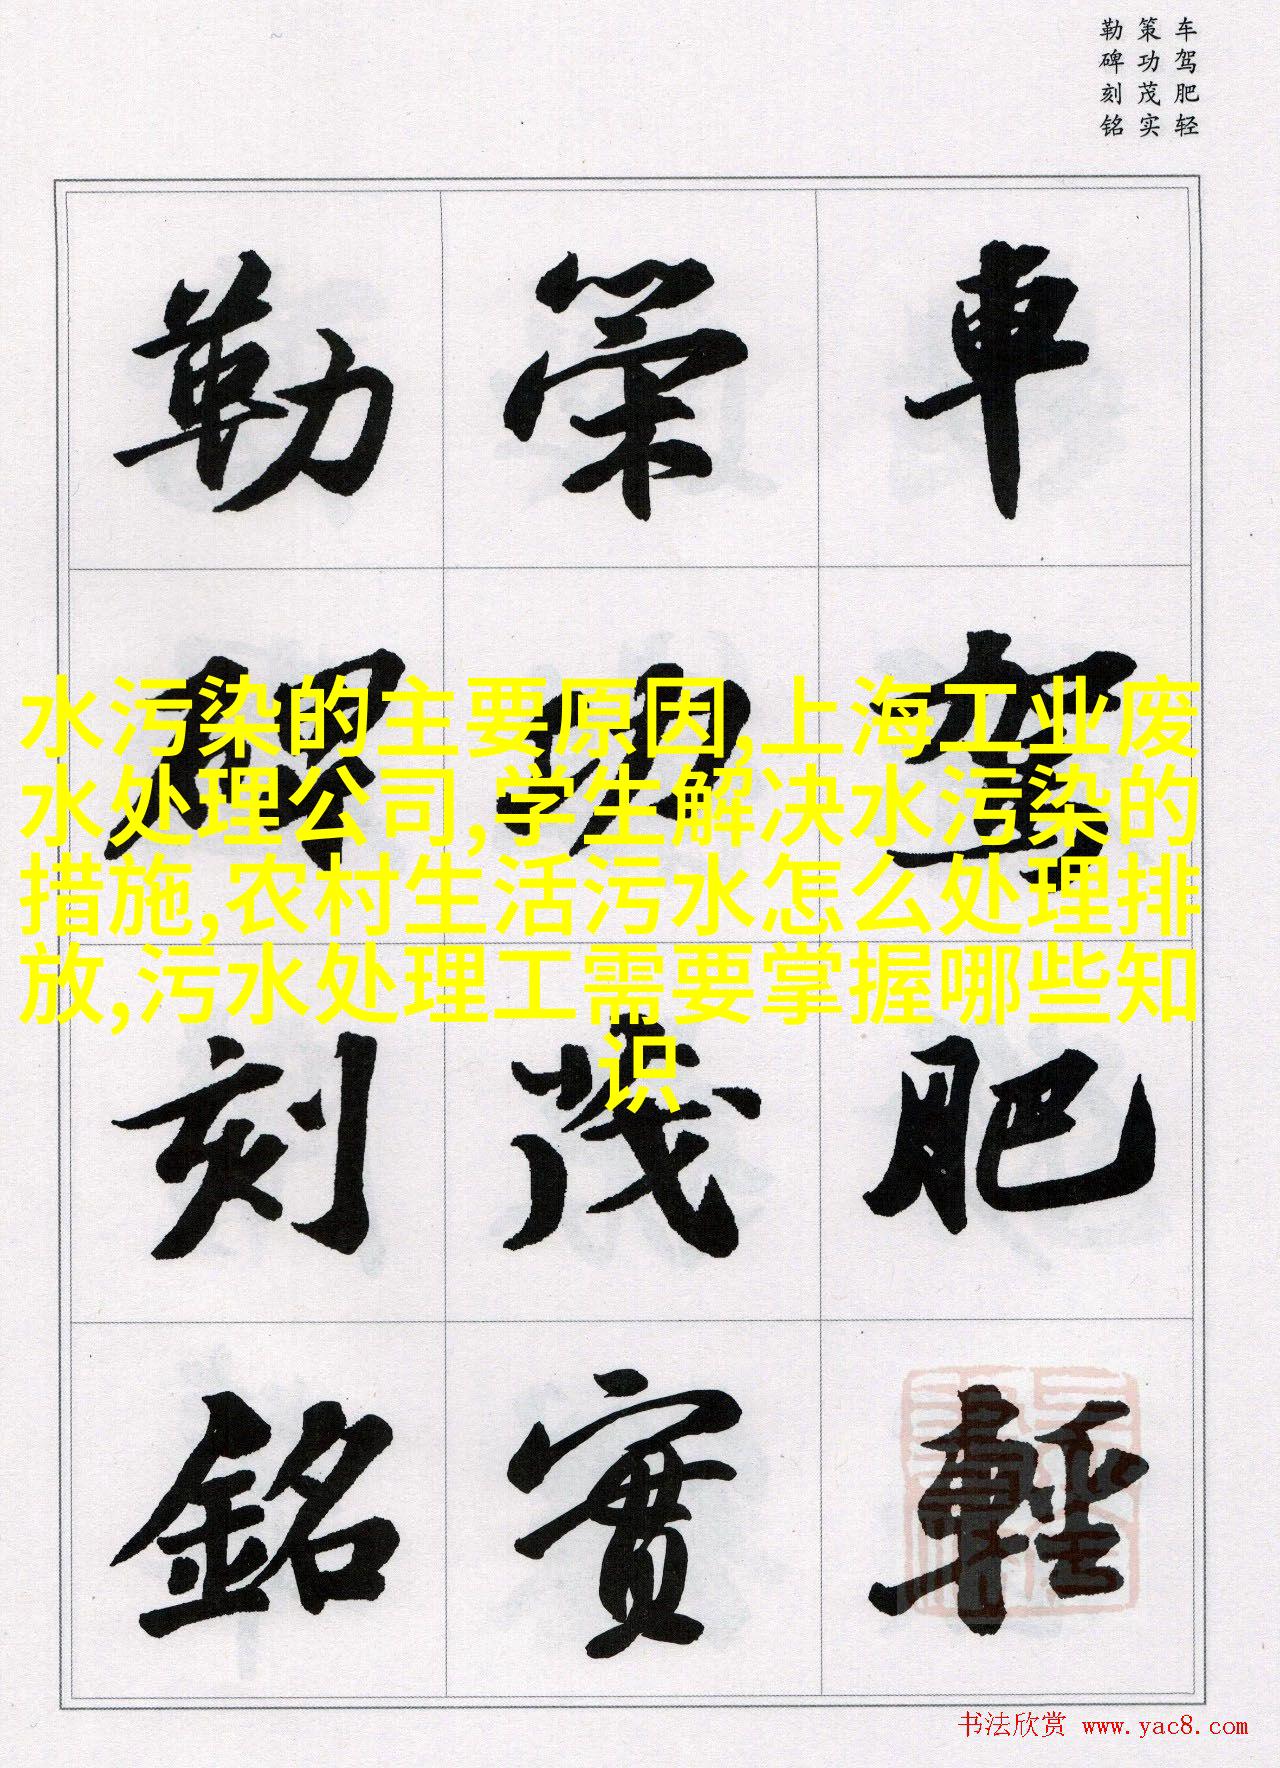 车驾肥轻
策功茂实
勒碑刻铭
車駕肥輕
策功茂實
勒碑刻銘
水污染的主要原因,上海工业废
水处理公司,学生解决水污染的
措施,农村生活污水怎么处理排
放,污水处理工需要掌握哪些知
识
书法欣赏 www.yac8.com